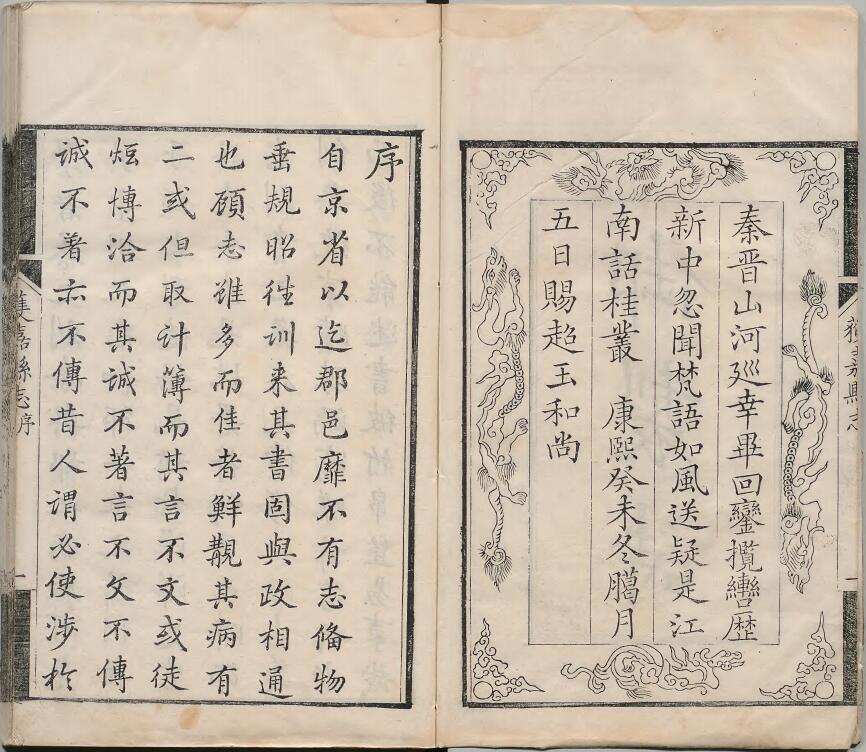 秦晉山河廵幸畢回鑾攬轡歷
新中忽聞梵語如風送疑是江
南話桂叢 康熙癸未冬臈月
五日賜超玉和尚
獲嘉縣志
序
自京省以迄郡邑靡不有志俻物
垂規昭徃訓来其書固與政相通
也碩志雖多而佳者鮮覯其病有
二或但取计薄而其言不文或徒
烜博洽而其誠不著言不文不傳
誠不著亦不傳昔人謂必使涉於
獲嘉縣志序
一